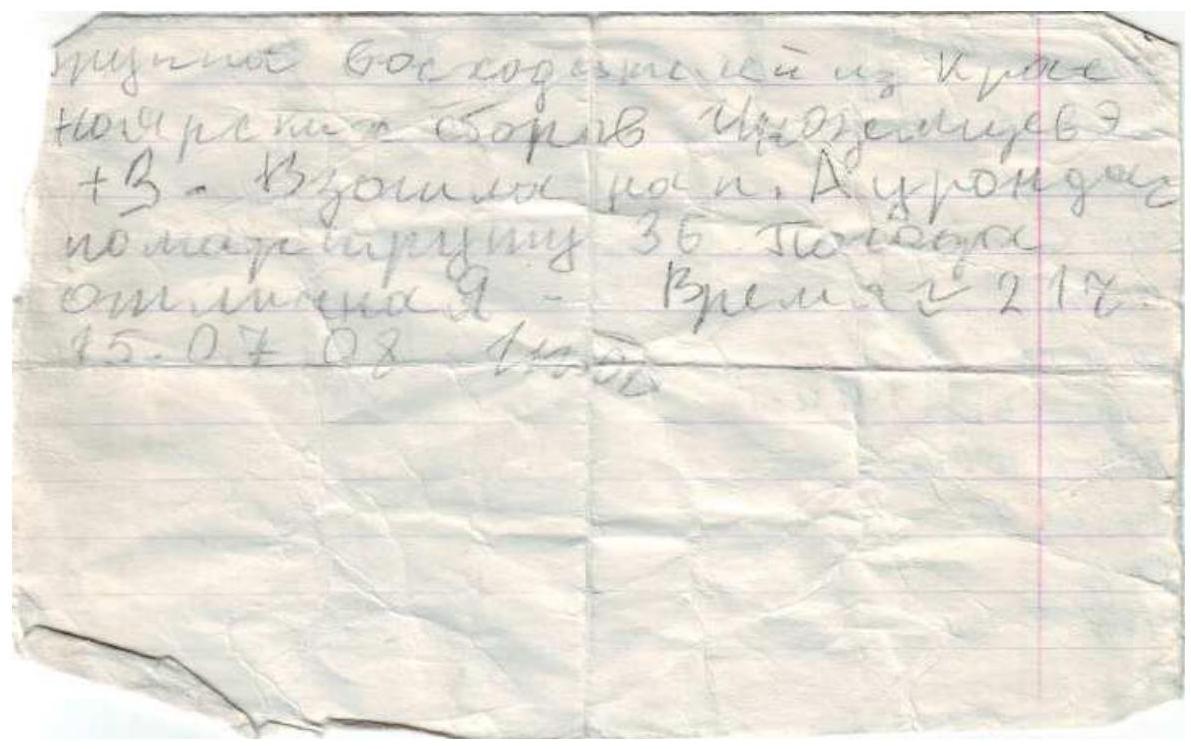 группа восходителей из Крас
ноярских сборов Иноземцев Э
+3 - Взошла на п. Аурондаг
по маршруту 3Б Погода
отличная - Время ~ 21ч.
15.07.08